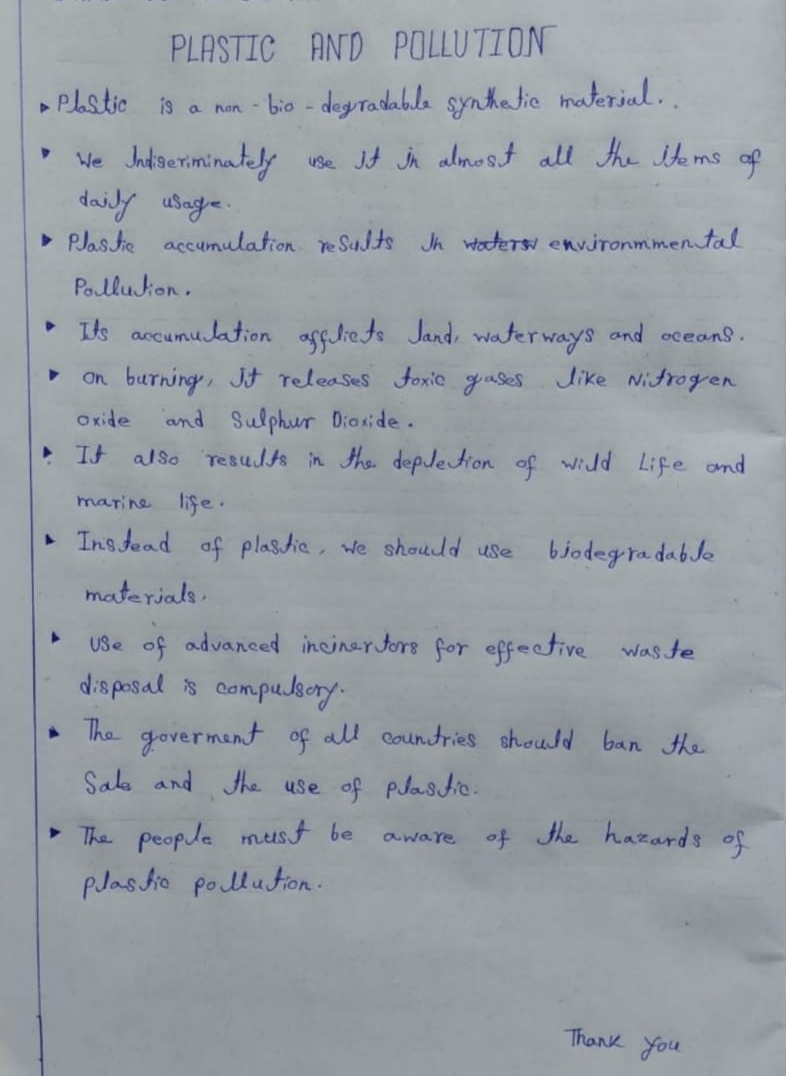 PLASTIC AND POLLUTION
▸ Plastic is a non-bio-degradable synthetic material..
▸ We Indiscriminately use it in almost all the items of
daily usage.
▸ Plastic accumulation results in environmmental
Pollution.
▸ Its accumulation afflicts land, waterways and oceans.
▸ on burning, it releases toxic gases like Nitrogen
oxide and Sulphur Dioxide.
▸ It also results in the depletion of wild Life and
marine life.
▸ Instead of plastic, we should use biodegradable
materials.
▸ Use of advanced incinertors for effective waste
disposal is compulsory.
▸ The goverment of all countries should ban the
Sale and the use of plastic.
▸ The people must be aware of the hazards of
plastic pollution.
Thank you